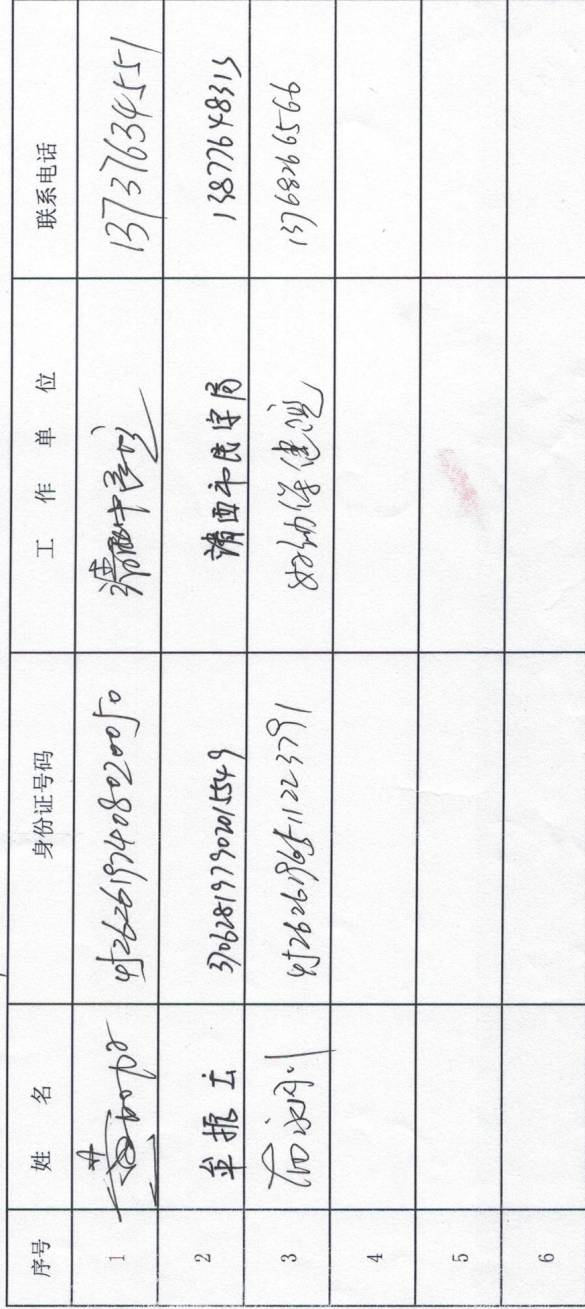 序号 姓名 身份证号码 工作单位 联系电话
1 452626197408020050 靖西中医院 13737634551
2 牟振云 370628197902015549 靖西市民宗局 13877648315
3 452626196511223791 妇幼保健院 13768266566
4
5
6